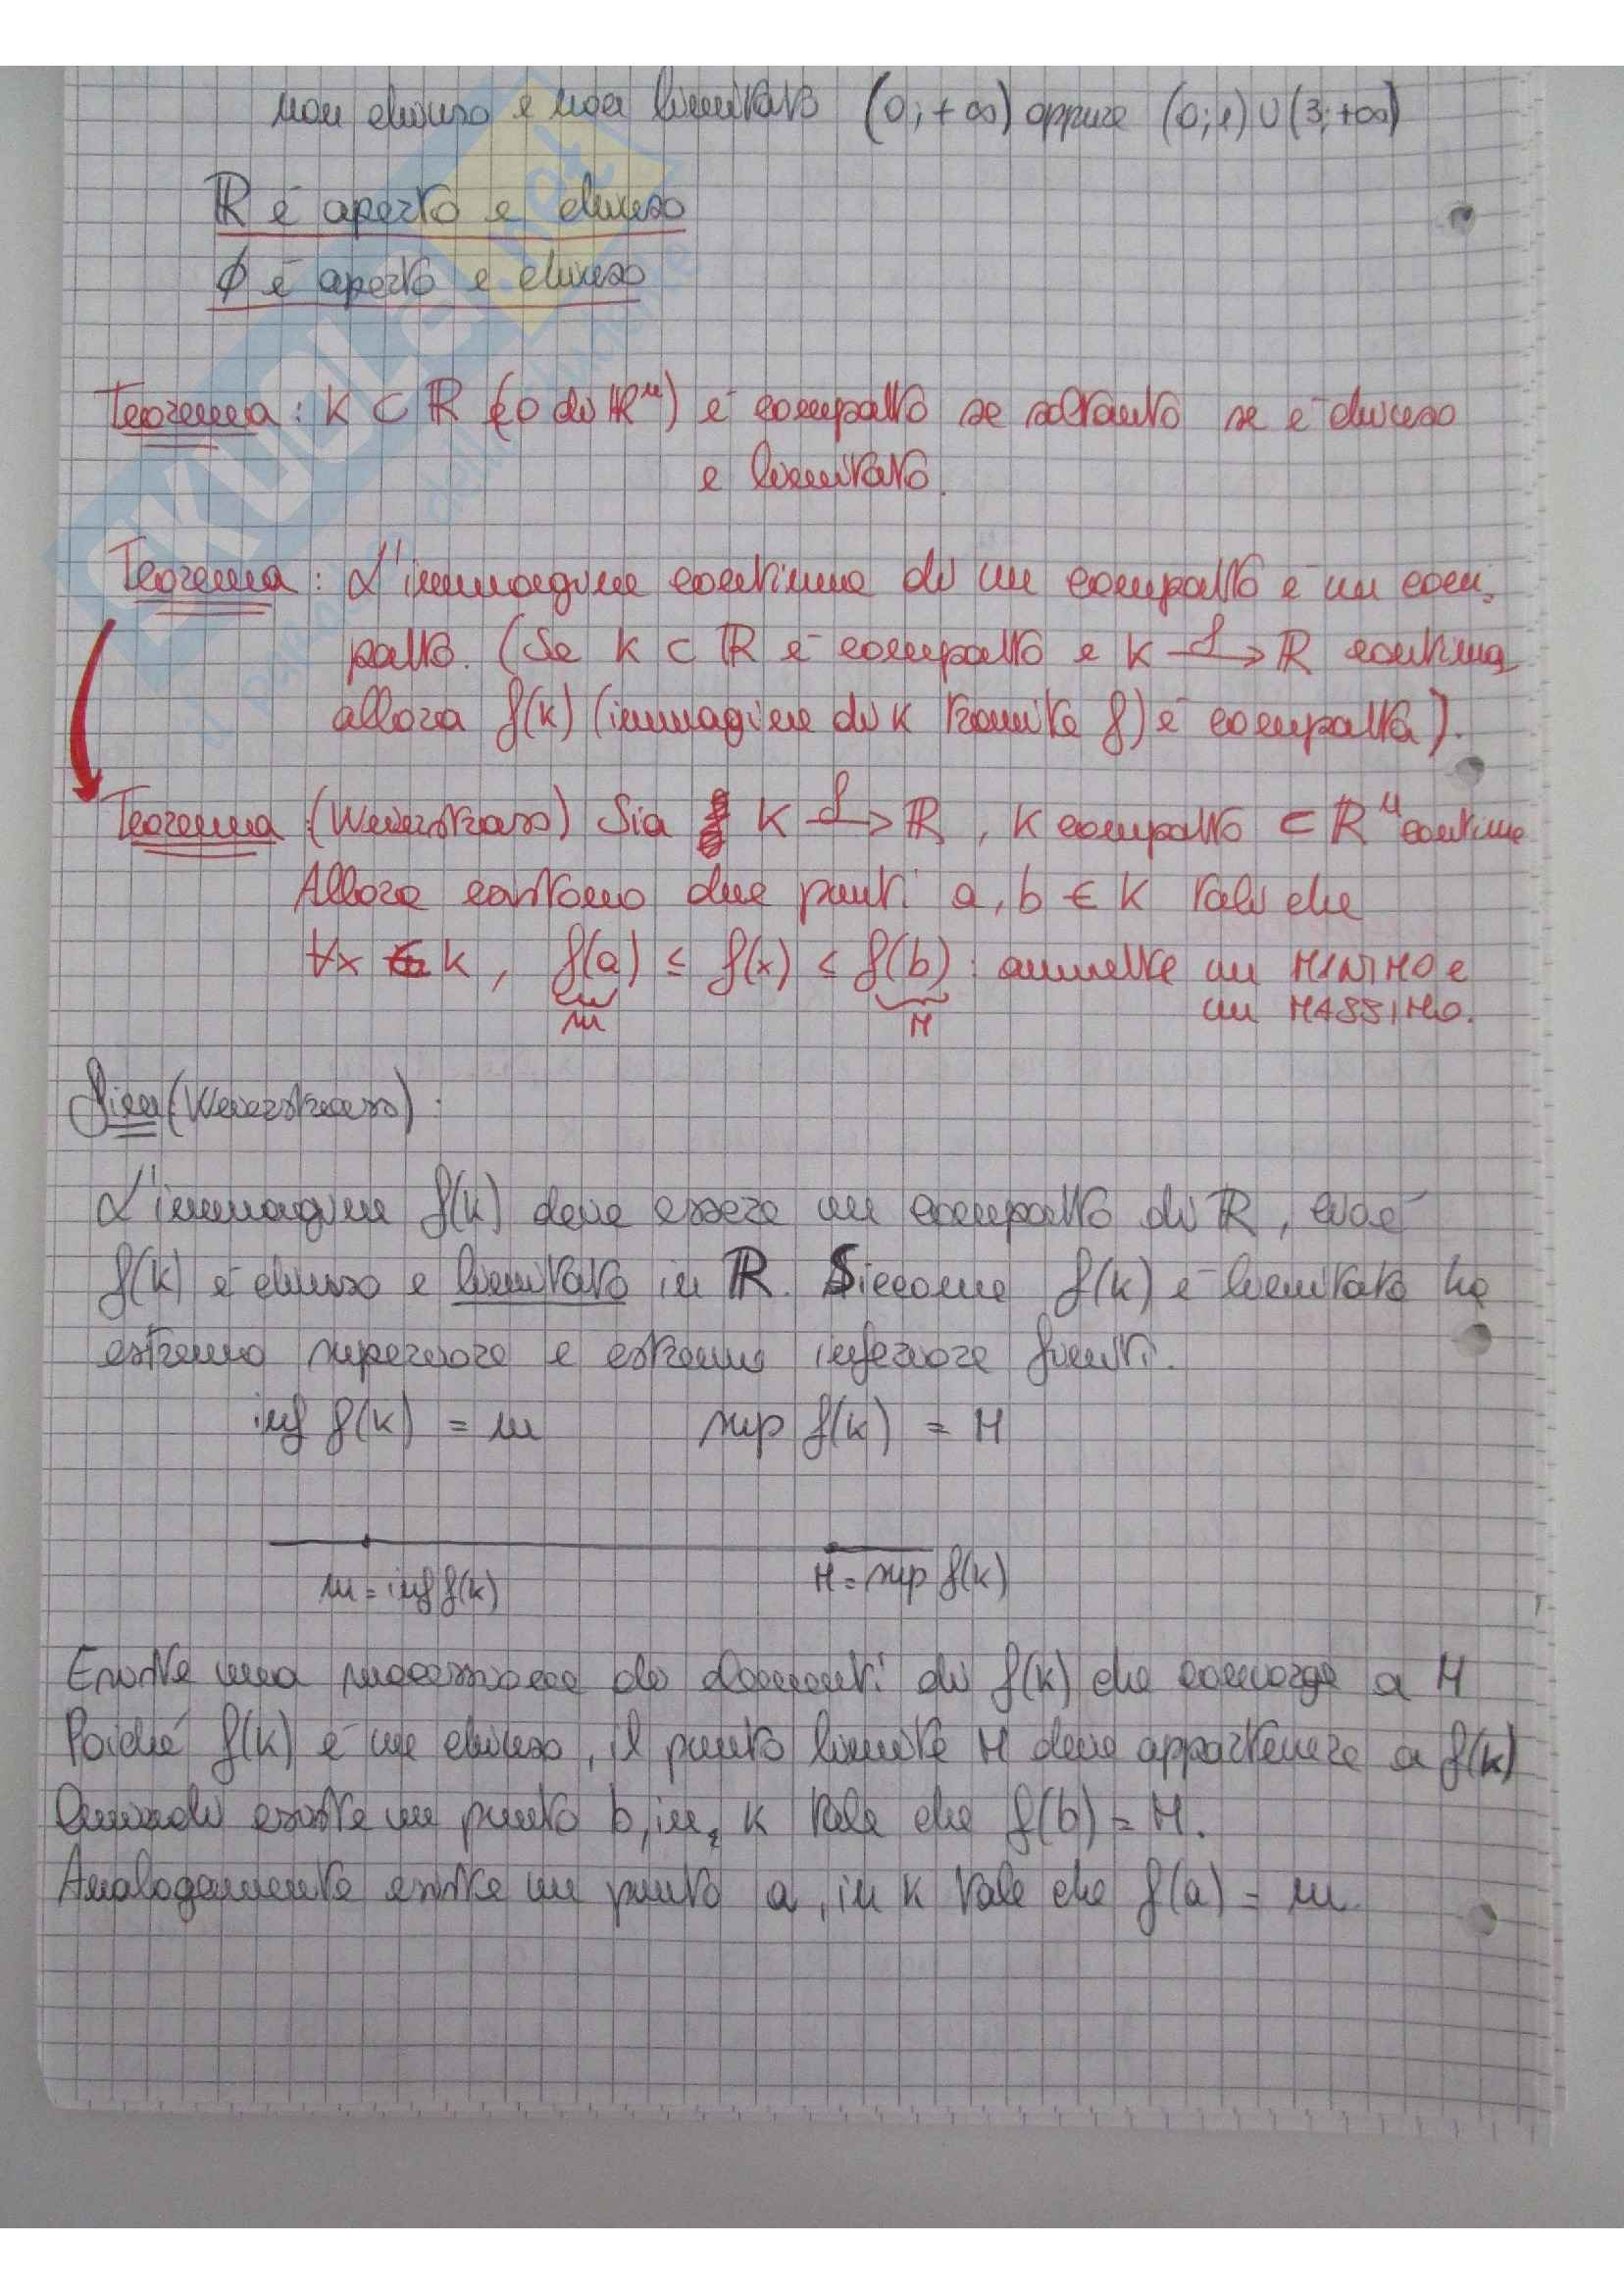 non chiuso e non limitato (0; +∞) oppure (0;1) ∪ (3; +∞)
ℝ è aperto e chiuso
∅ è aperto e chiuso
Teorema: K ⊂ ℝ (o di ℝⁿ) è compatto se soltanto se è chiuso
e limitato.
Teorema: L'immagine continua di un compatto è un com-
patto. (Se K ⊂ ℝ è compatto e K —f→ ℝ continua
allora f(K) (immagine di K tramite f) è compatta).
Teorema (Weierstrass) Sia K —f→ ℝ, K compatto ⊂ ℝⁿ continue
Allora esistono due punti a, b ∈ K tali che
∀x ∈ K, f(a) ≤ f(x) ≤ f(b) : ammette un MINIMO e
m M un MASSIMO.
Dim (Weierstrass):
L'immagine f(K) deve essere un compatto di ℝ, cioè
f(K) è chiuso e limitato in ℝ. Siccome f(K) è limitato ha
estremo superiore e estremo inferiore finiti.
inf f(K) = m sup f(K) = M
m = inf f(K) M = sup f(K)
Esiste una successione di elementi di f(K) che converge a M
Poiché f(K) è un chiuso, il punto limite M deve appartenere a f(K)
Quindi esiste un punto b, in K tale che f(b) = M.
Analogamente esiste un punto a, in K tale che f(a) = m.
SKUOLA.net